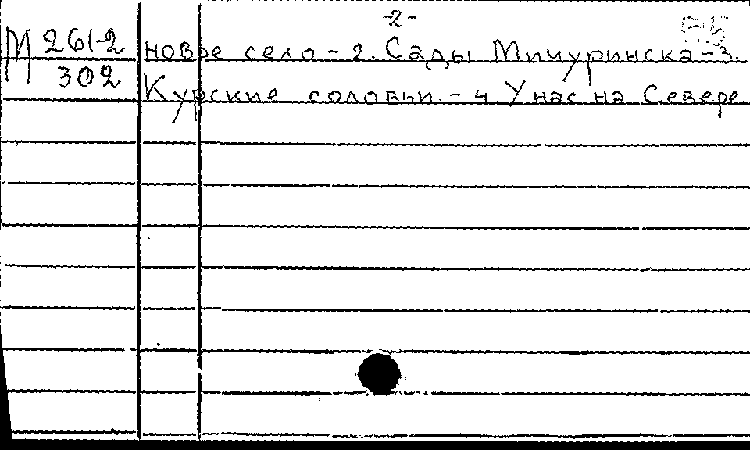 -2-
М 261-2 новое село - 2. Сады Мичуринска - 3.
302 Курские соловьи. - 4 У нас на Севере